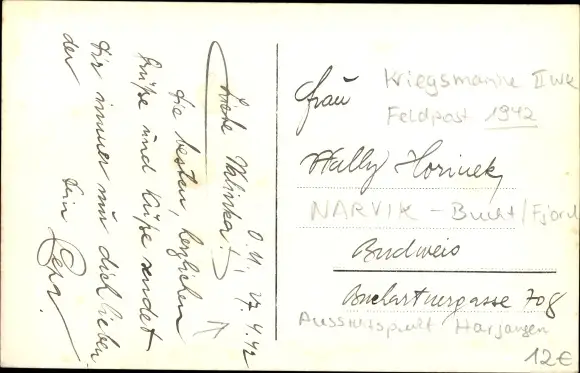 O.U., 27.4.42
Liebe Walinka!
die besten, herzlichen
Grüße und Küße sendet
Dir immer nur dich lieben
der Dein Pepa.
Kriegsmarine II WK
Feldpost 1942
Frau
Wally Horinek,
NARVIK - Bucht/Fjord
Budweis
708
Aussichtspunkt Harjangen
12€